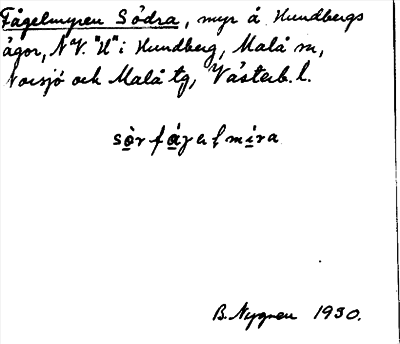 Fågelmyren Södra, myr å Hundbergs
ägor, NV. "H" i Hundberg, Malå sn,
Norsjö och Malå tg, Västerb. l.
B. Nygren 1930.